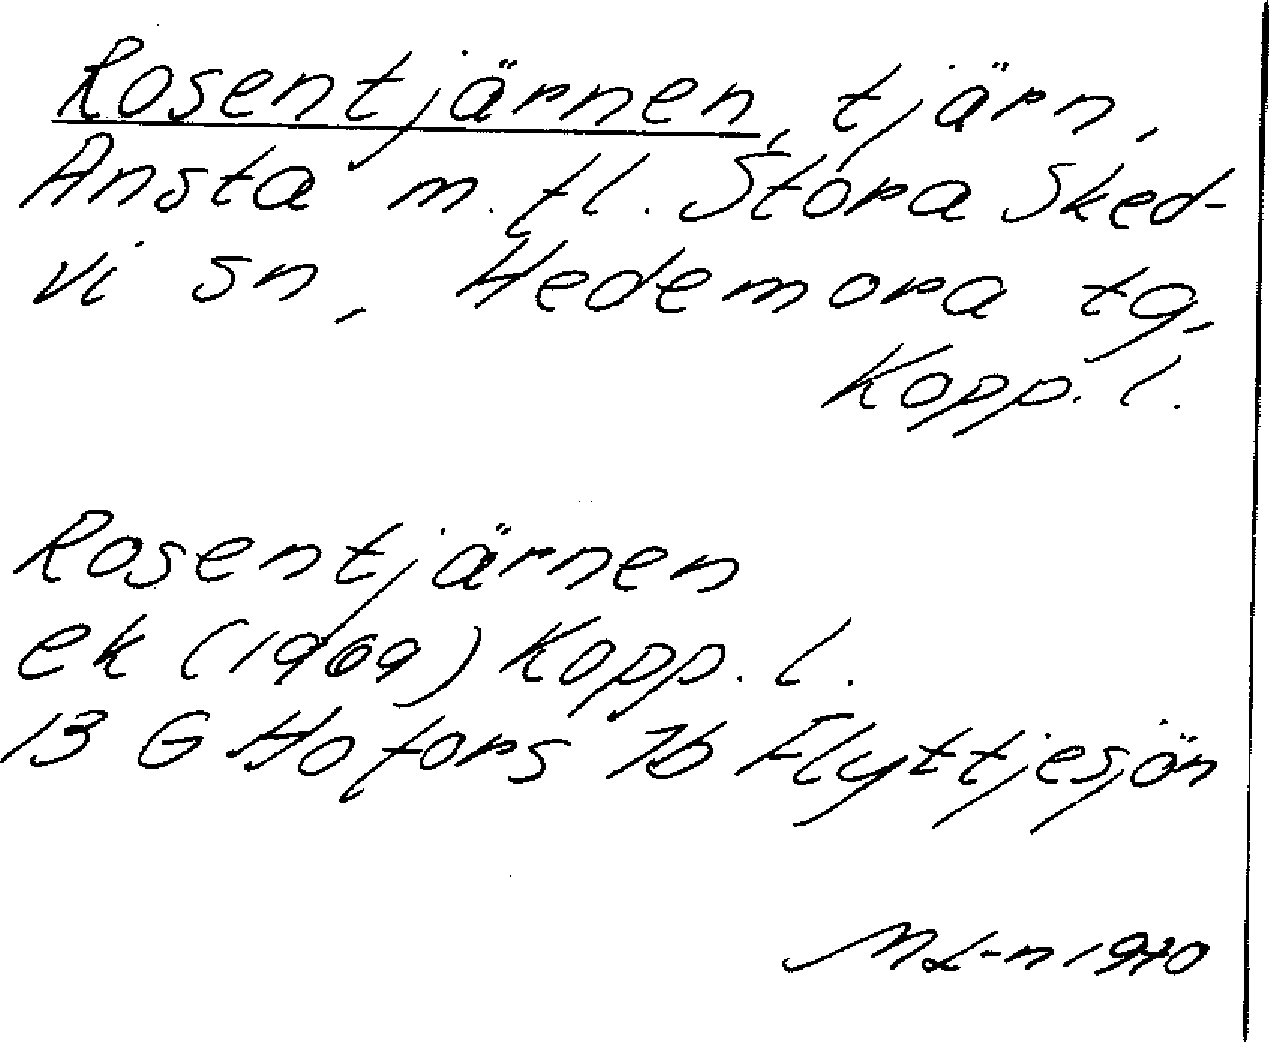 Rosentjärnen, tjärn,
Ansta m.fl. Stora Sked-
vi sn, Hedemora tg,
Kopp. l.
Rosentjärnen
ek (1969) Kopp. l.
13 G Hofors 7b Flyttjesjön
1970